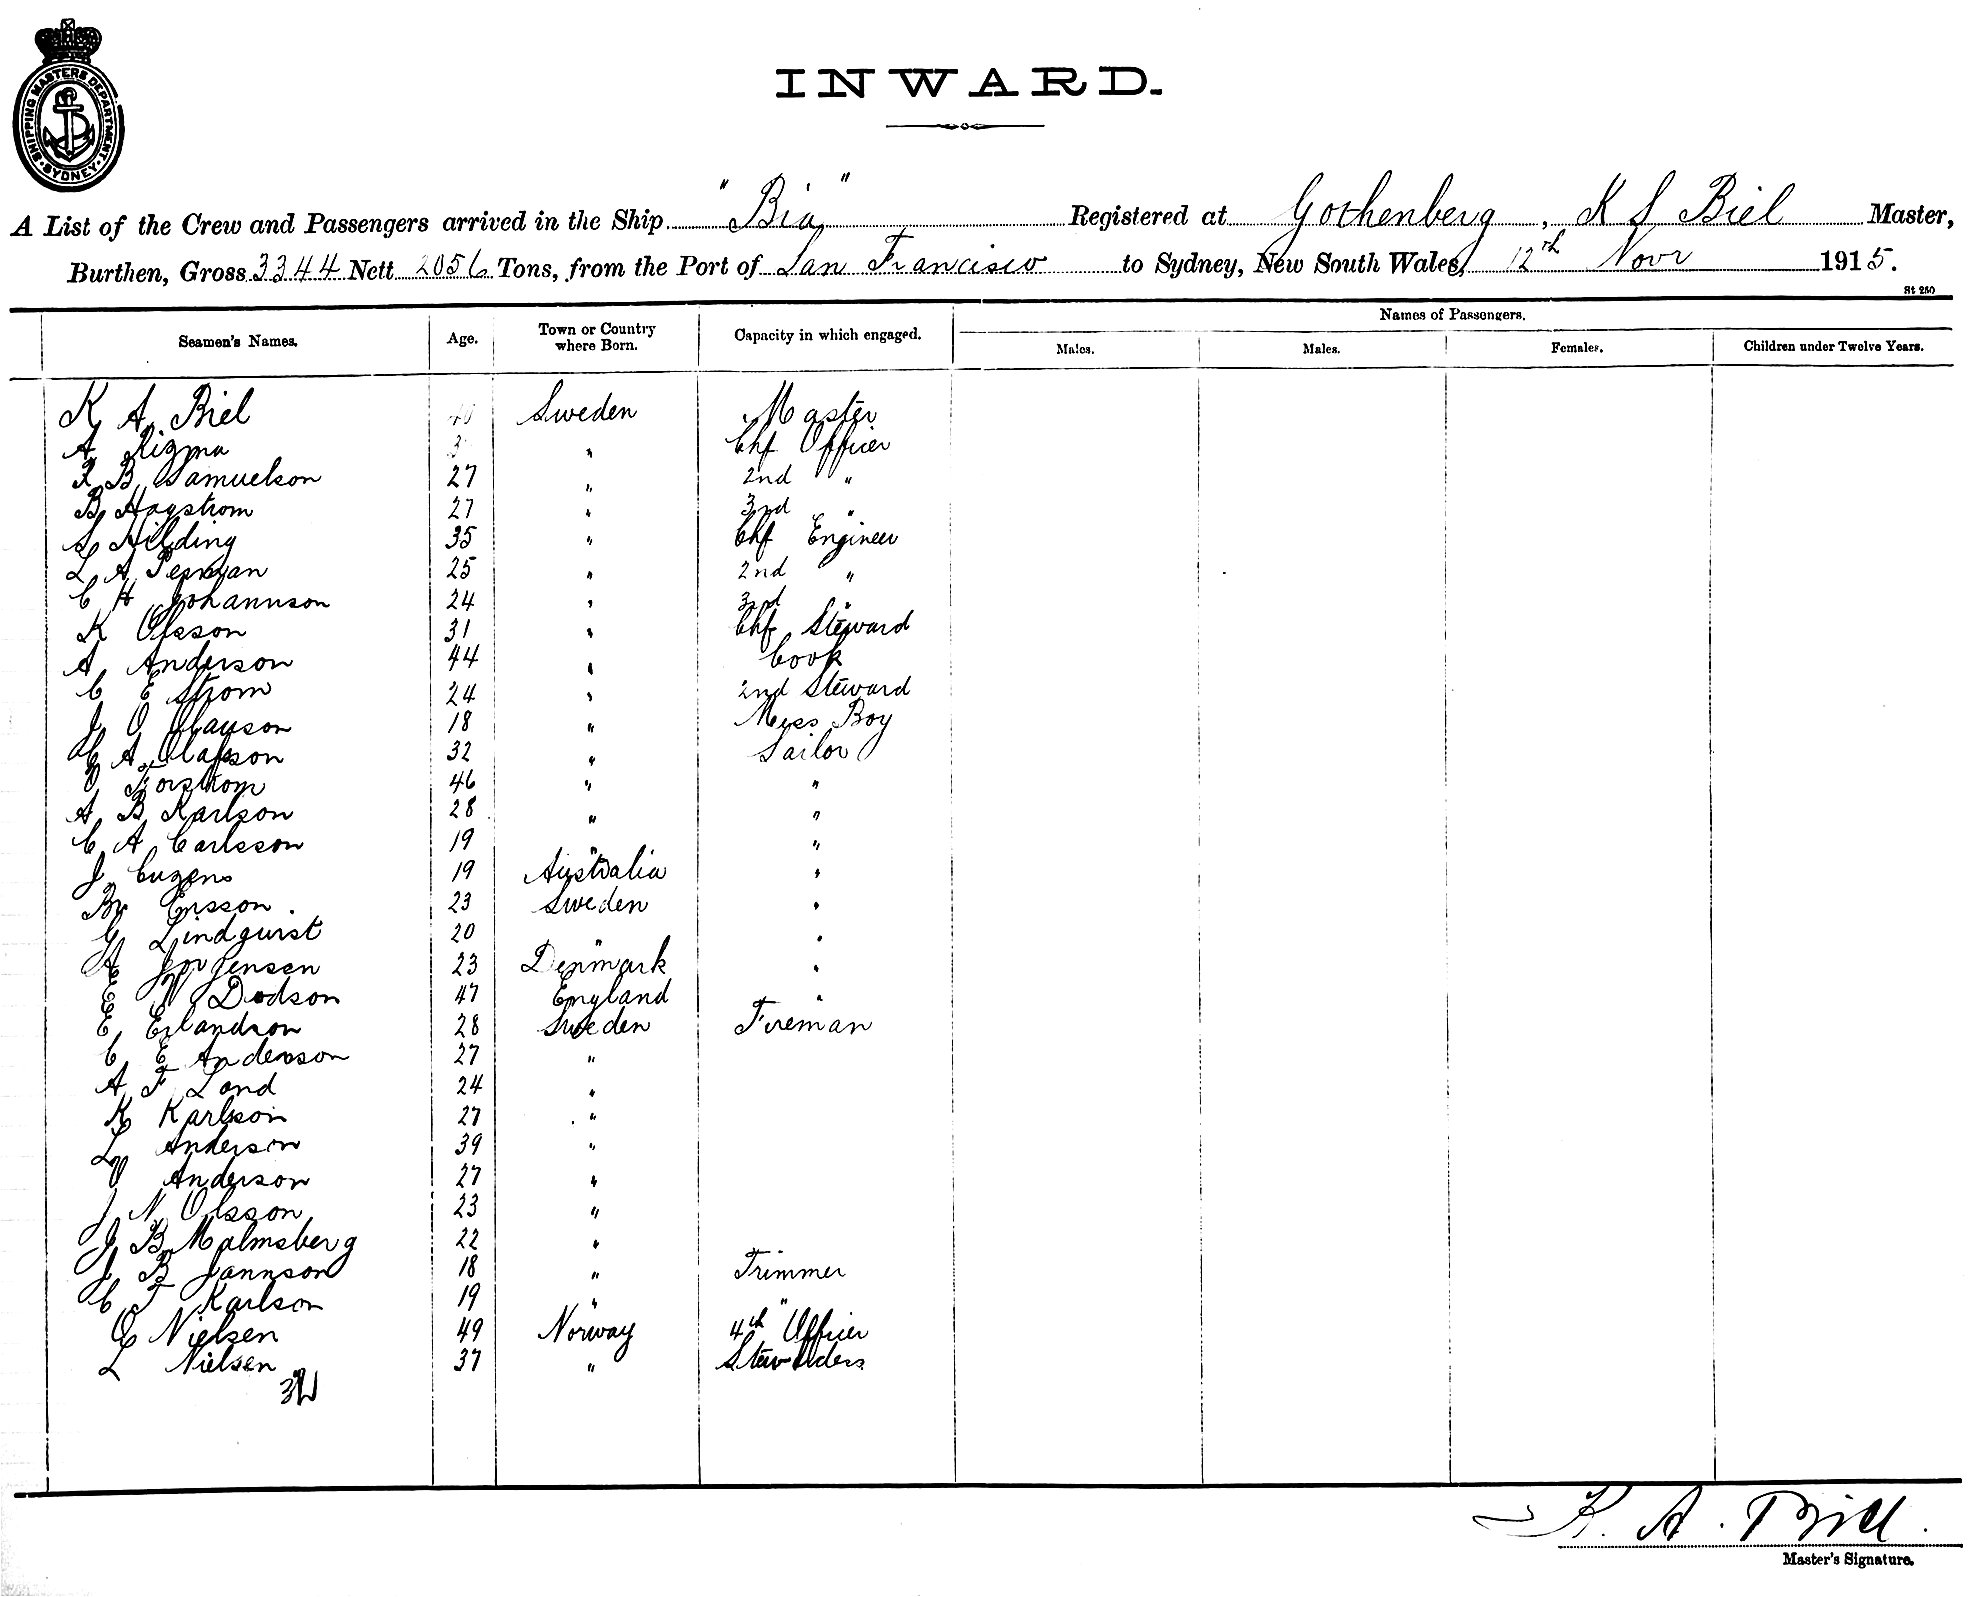 SHIPPING MASTERS DEPARTMENT · SYDNEY ·
INWARD.
A List of the Crew and Passengers arrived in the Ship "Bia" Registered at Gothenberg, K S Biel Master,
Burthen, Gross 3344 Nett 2056 Tons, from the Port of San Francisco to Sydney, New South Wales, 12th Novr 1915.
St 250
Seamen's Names. Age. Town or Country where Born. Capacity in which engaged. Names of Passengers.
Males. Males. Females. Children under Twelve Years.
K A Biel 40 Sweden Master
A 3 " Chf Officer
B Samuelson 27 " 2nd "
B Hagstrom 27 " 3rd "
Hilding 35 " Chf Engineer
L A 25 " 2nd "
C H Johannson 24 " 3rd "
K Olsson 31 " Chf Steward
A Anderson 44 " Cook
C E Strom 24 " 2nd Steward
J O Olauson 18 " Mess Boy
C A Olafsson 32 " Sailor
O Forstrom 46 " "
A B Karlson 28 " "
C A Carlsson 19 " "
J Cuzens 19 Australia "
Br Ersson 23 Sweden "
G Lindqurst 20 " "
A Jorjensen 23 Denmark "
E W Dodson 47 England "
E Erlandson 28 Sweden Fireman
C E Anderson 27 "
A F Lond 24 "
K Karlson 27 "
L Anderson 39 "
O Anderson 27 "
J N Olsson 23 "
J B Malmsberg 22 "
J B Jannson 18 " Trimmer
C F Karlson 19 " "
C Nielsen 49 Norway 4th Officer
L Nielsen 37 "
K. A. Biel.
Master's Signature.